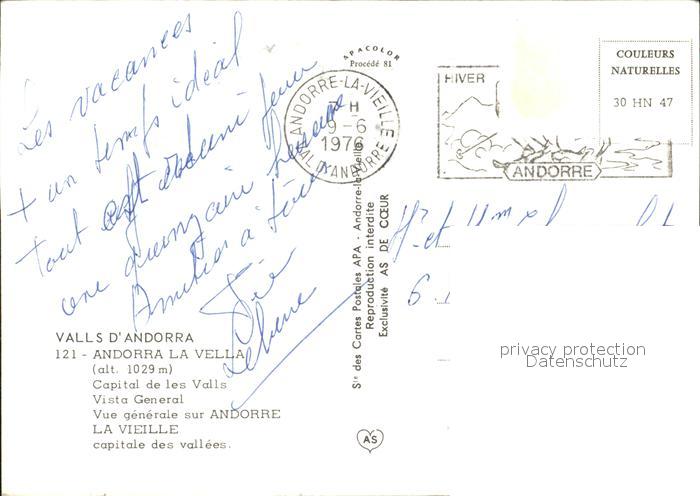 Les vacances
+ un temps idéal
tout est réuni pour
une quinzaine heureuse
Amitiés à tous
VALLS D'ANDORRA
121 - ANDORRA LA VELLA
(alt. 1029 m)
Capital de les Valls
Vista General
Vue générale sur ANDORRE
LA VIEILLE
capitale des vallées.
APACOLOR
Procédé 81
Sté des Cartes Postales APA - Andorre-la-Vieille
Reproduction interdite
Exclusivité AS DE CŒUR
AS
ANDORRE-LA-VIEILLE
9-6
1976
VAL D'ANDORRE
HIVER
ANDORRE
COULEURS
NATURELLES
30 HN 47
privacy protection
Datenschutz